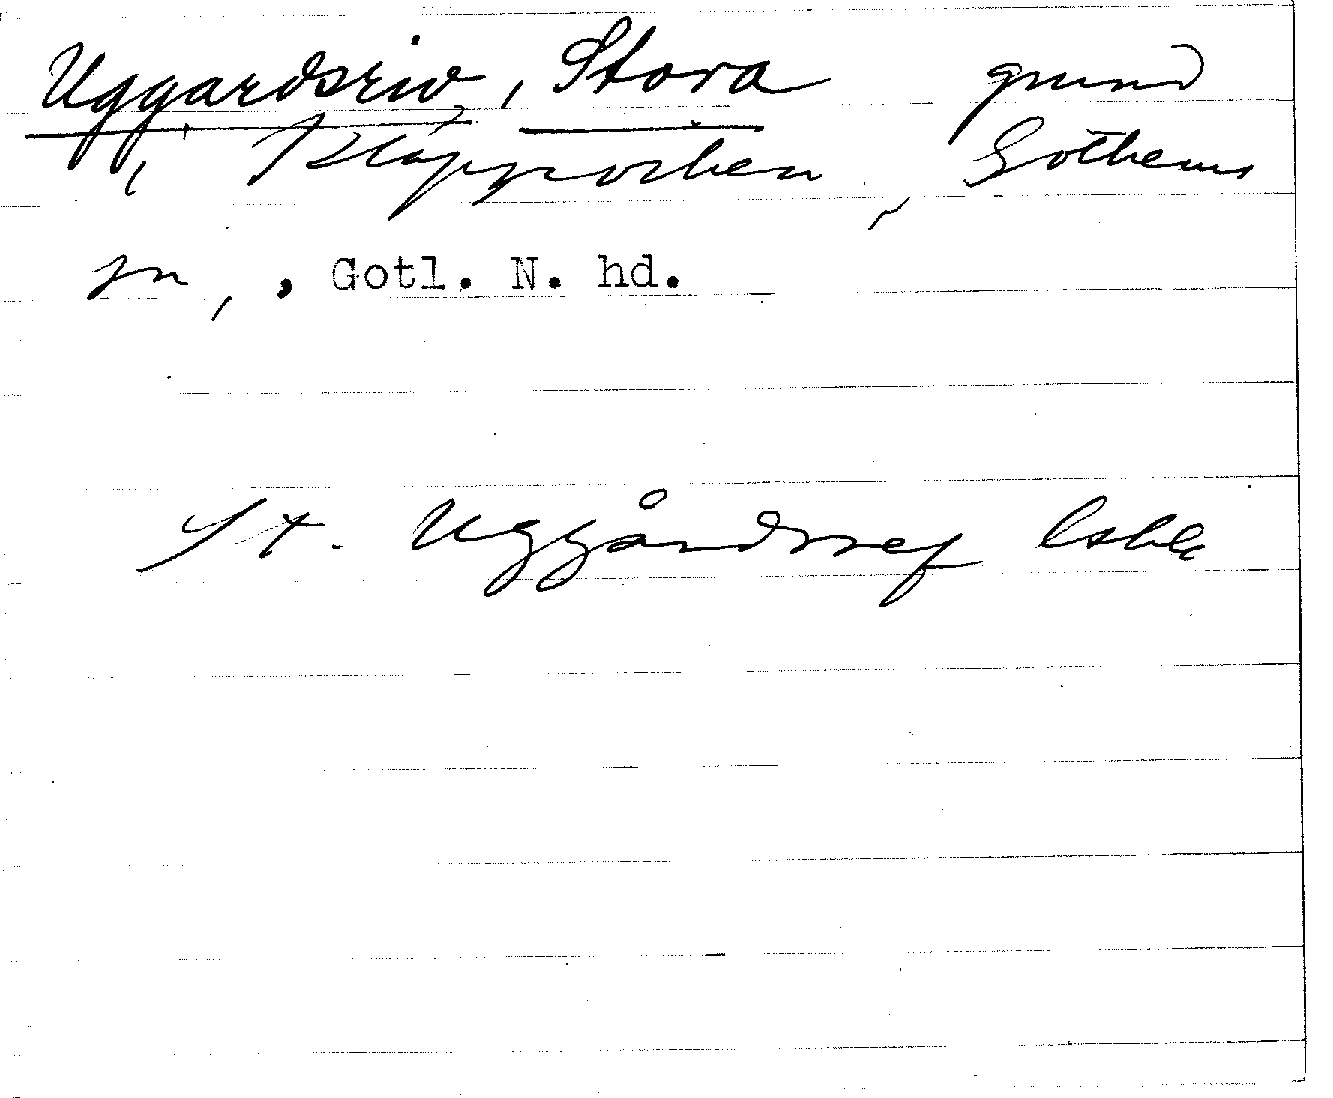 Uggardsriv, Stora grund
i Kläppviken, Gothems
sn, , Gotl. N. hd.
St. Uggårdsref